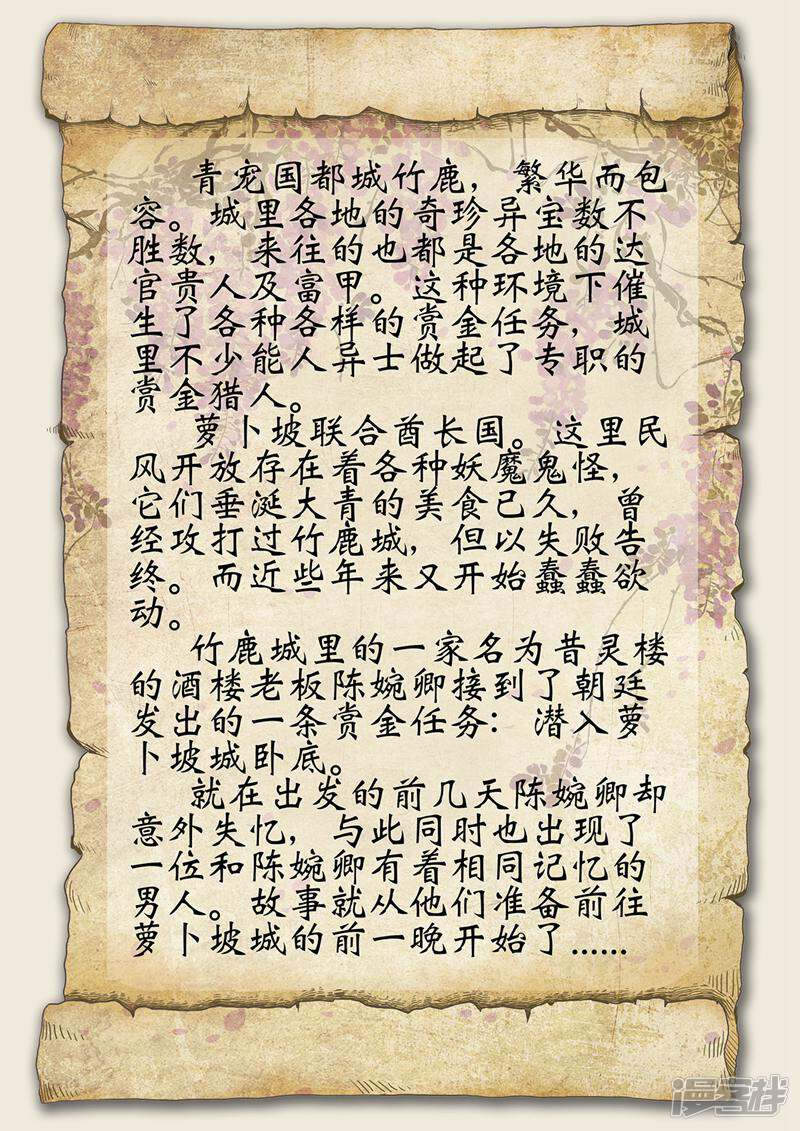 青宠国都城竹鹿，繁华而包
容。城里各地的奇珍异宝数不
胜数，来往的也都是各地的达
官贵人及富甲。这种环境下催
生了各种各样的赏金任务，城
里不少能人异士做起了专职的
赏金猎人。
萝卜坡联合酋长国。这里民
风开放存在着各种妖魔鬼怪，
它们垂涎大青的美食已久，曾
经攻打过竹鹿城，但以失败告
终。而近些年来又开始蠢蠢欲
动。
竹鹿城里的一家名为昔灵楼
的酒楼老板陈婉卿接到了朝廷
发出的一条赏金任务：潜入萝
卜坡城卧底。
就在出发的前几天陈婉卿却
意外失忆，与此同时也出现了
一位和陈婉卿有着相同记忆的
男人。故事就从他们准备前往
萝卜坡城的前一晚开始了……
漫客栈